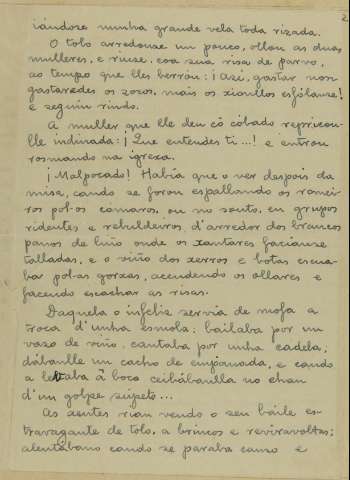 2
iándose nunha grande vela toda rizada.
O tolo arredouse un pouco, ollou as duas
mulleres, e riuse, coa sua risa de parvo,
ao tempo que lles berrou: ¡Asi, gastar non
gastaredes os zocos, mais os xionllos esfóla​nse!
e seguiu rindo.
A muller que lle deu có cóbado repricou-
lle indinada: ¡Que entendes ti...! e entrou
rosmando na igrexa.
¡Malpocado! Había que o ver despois da
misa, cando se foron espallando os romei-
ros pol-os cómaros, ou no souto, en grupos
ridentes e rebuldeiros, d'arredor dos brancos
panos de liño onde os xantares facíanse
talladas, e o viño dos xerros e botas escua-
bar pol-as gorxas, acendendo os ollares e
facendo escachar as risas.
Daquela o infeliz servía de mofa a
troca d'unha esmola: bailaba por un
vaso de viño, cantaba por unha cadela,
dábanlle un cacho de empanada, e cando
a levaba â boca ceibábanlla no chan
d'un golpe súpeto...
As xentes rian vendo o seu baile es-
travagante de tolo, a brincos e reviravoltas;
alentábano cando se paraba canso e